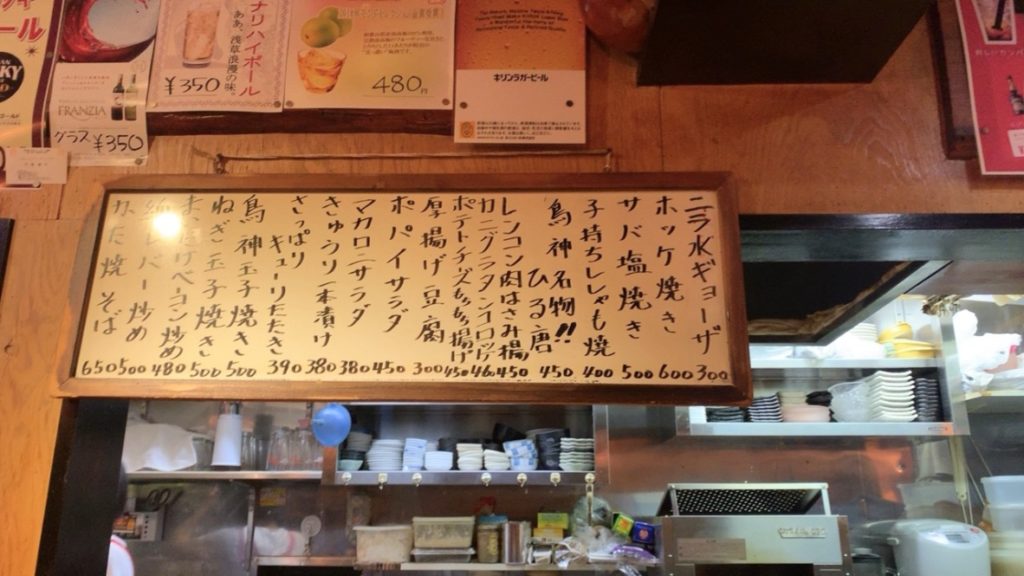 ニラ水ギョーザ 300
ホッケ焼き 600
サバ塩焼き 500
子持ちししゃも焼 400
鳥神名物!! ひる唐 450
レンコン肉はさみ揚 450
カニグラタンコロッケ 460
ポテトチーズもち揚げ 450
厚揚げ豆腐 300
ポパイサラダ 450
マカロニサラダ 380
きゅうり一本漬け 380
さっぱり キューリたたき 390
鳥神玉子焼き 500
ねぎ玉子焼き 500
ベーコン炒め 480
レバー炒め 500
かた焼そば 650
ール
FRANZIA
グラス ¥350
ナリハイボール
ああ、浅草浪漫の味。
¥350
480円
キリンラガービール